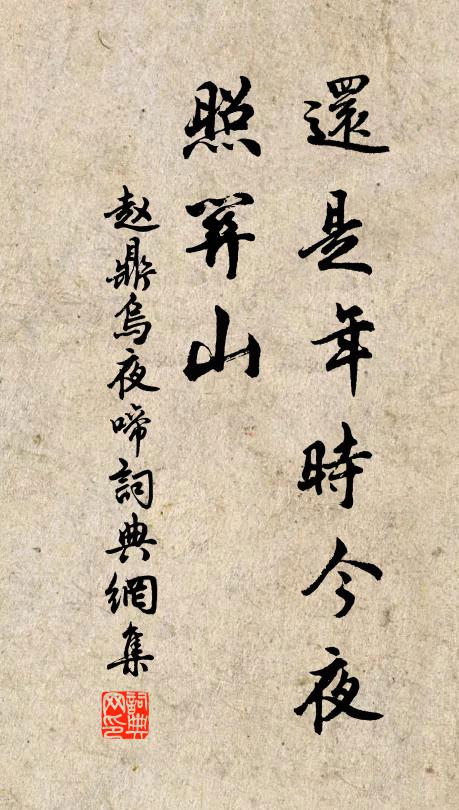 還是年時今夜
照關山
赵鼎烏夜啼詞典網集
詞典网印